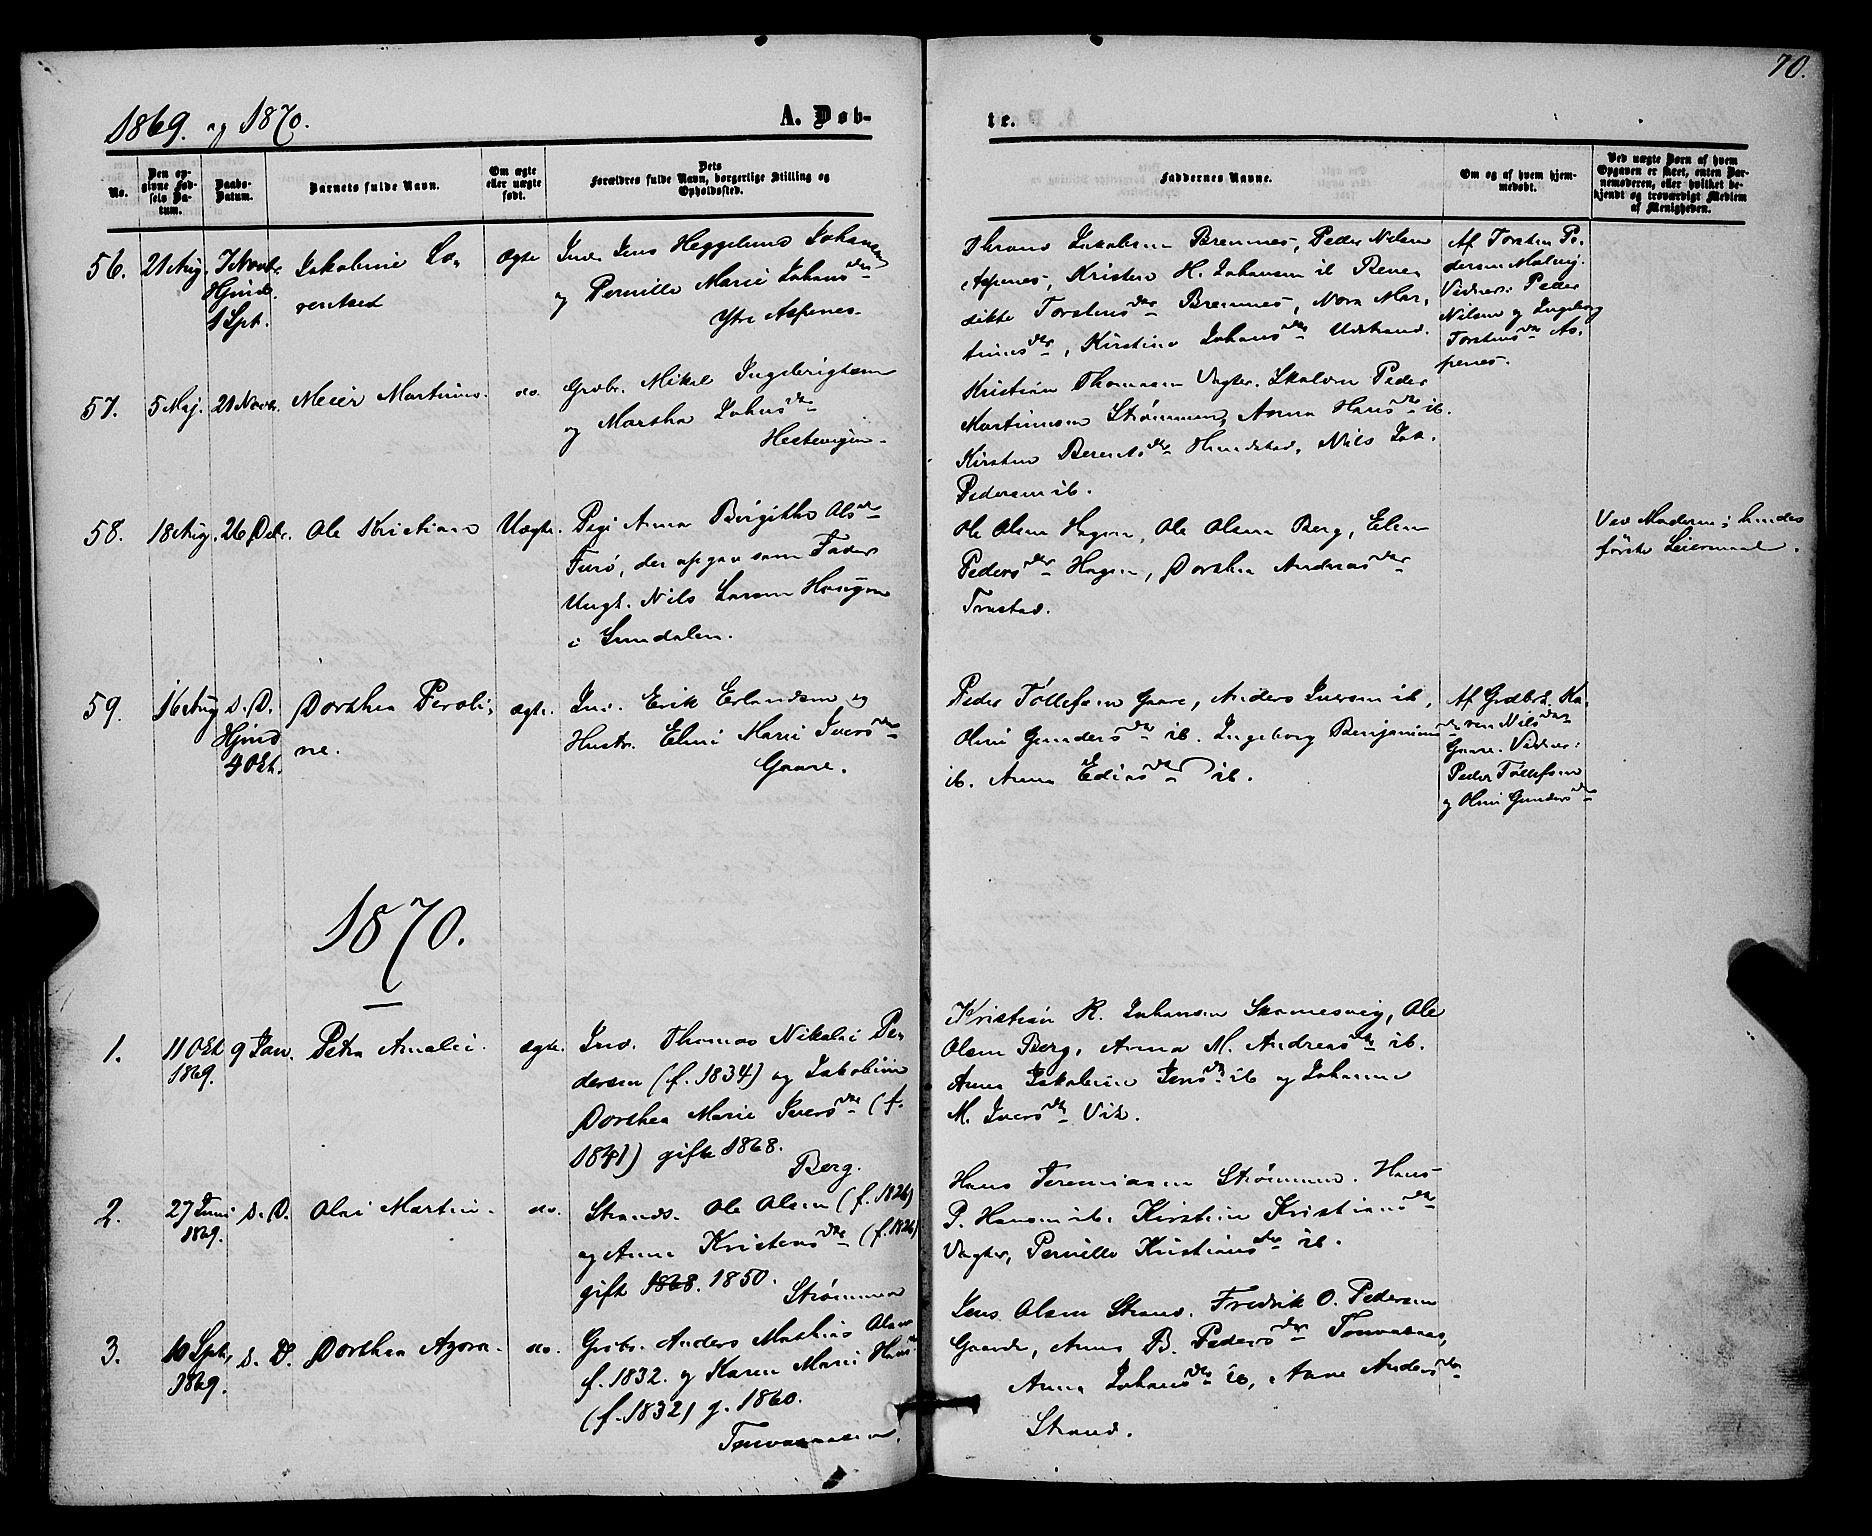 70.
1869. og 1870.
A. Døb-
te.
No.
Den op-
givne Fød-
sels Da-
tum.
Daabs-
Datum.
Barnets fulde Navn.
Om ægte
eller uægte
født.
Dets
Forældres fulde Navn, borgerlige Stilling og
Opholdssted.
Faddernes Navne.
Om og af hvem hjem-
medøbt.
Ved uægte Børn af hvem
Opgaven er skeet, enten Bar-
nemoderen, eller hvilket be-
kjendt og troværdigt Medlem
af Menigheden.
56.
21 Aug.
7 Novbr.
Hjmd.
1 Spt.
Jakobine Lo-
rentsed
ægte
Ind. Jens Heggelund Johansen
og Pernille Marie Johansdtr
Ytre Aspenes.
Thrond Jakobsen Bremnes, Peder Nilsen
Aspenes, Kristen H. Johansen ib Bene-
dikte Torstensdtr Bremnes, Nora Mar-
tinusdtr, Kirstine Johansdtr Udstrand.
Af Torsten Pe-
dersen Malvig.
Vidner: Peder
Nilsen og Ingeborg
Torstensdtr As-
penes.
57.
5 Maj.
21 Novbr.
Meier Martinus.
do.
Grdbr. Mikal Ingebrigtsen
og Martha Johnsdtr
Hestevigen.
Kristian Thomassen Vagter. Skolem Peder
Martinusen Strømmen, Anna Hansdtr ib.
Kirsten Berentsdtr Hundstad, Nils Jak.
Pedersen ib.
58.
18 Aug.
26 Debr.
Ole Kristian
Uægte.
Pige Anna Birgitta Olsdtr
Furø, der opgav som Fader
Ungk. Nils Larsen Haugen
i Sundalen.
Ole Olsen Hagen, Ole Olsen Berg, Elen
Pedersdtr Hagen, Dorthea Andreasdtr
Trastad.
Ved Moderen; hendes
første Leiermaal.
59.
16 Aug
s. D.
Hjmd
4 Okt.
Dorthea Peroli-
ne.
ægte.
Ind. Erik Erlandsen og
Hustr. Elen Marie Iversdtr
Gaare.
Peder Tollefsen Gaare, Anders Iversen ib,
Oline Gundersdtr ib. Ingeborg Benjaminsdtr
ib. Anna Ediasdtr ib.
Af Grdbrk. Ka-
ren Nilsdtr
Gaare. Vidner:
Peder Tollefsen
og Oline Gundersdtr
1870.
1.
11 Okt
1869.
9 Jan.
Petra Amalie.
ægte.
Ind. Thomas Nikolai Pe-
dersen (f. 1834) og Jakobine
Dorthea Marie Iversdtr (f.
1841) gifte 1868.
Berg.
Kristian R. Johansen Skomesvig, Ole
Olsen Berg, Anna M. Andreasdtr ib.
Anna Jakobine Jensdtr ib og Johanna
M. Iversdtr Vik.
2.
27 Juni
1869.
s. D.
Olai Martin.
do.
Strands. Ole Olsen (f. 1826)
og Anne Kristensdtr (f. 1826)
gift 1868. 1850.
Strømmen
Hans Jeremiassen Strømmen. Hans
P. Hansen ib. Kirsten Kristiansdtr
Vagter, Pernille Kristiansdtr ib.
3.
10 Spt.
1869.
s. D.
Dorthea Azora.
do.
Grdbr. Anders Mathias Olsen
f. 1832. og Karen Marie Hansdtr
(f. 1832) g. 1860.
Jens Olsen Strand. Fredrik O. Pedersen
Gaarde, Anne B. Pedersdtr
Anna Johansdtr ib, Anne Andersdtr
Strand.